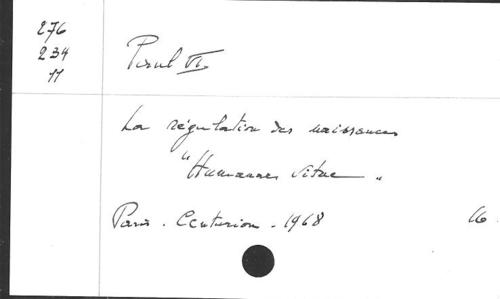 276
234
11
Paul VI
La régulation des naissances
"Humanae Vitae"
Paris - Centurion - 1968